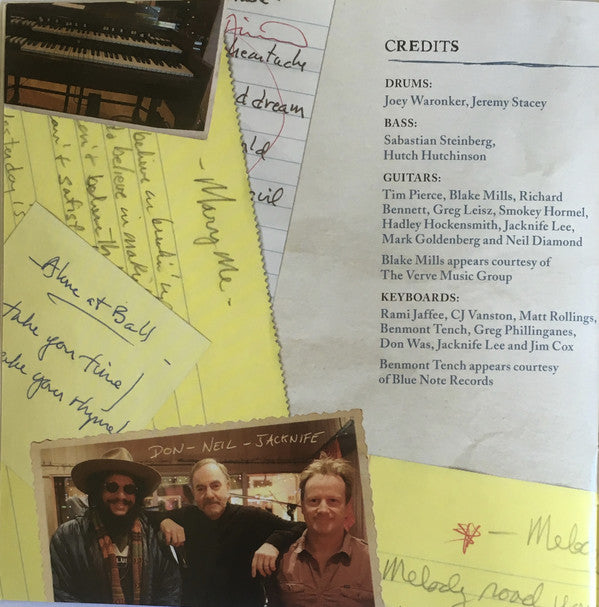 CREDITS
DRUMS:
Joey Waronker, Jeremy Stacey
BASS:
Sabastian Steinberg,
Hutch Hutchinson
GUITARS:
Tim Pierce, Blake Mills, Richard
Bennett, Greg Leisz, Smokey Hormel,
Hadley Hockensmith, Jacknife Lee,
Mark Goldenberg and Neil Diamond
Blake Mills appears courtesy of
The Verve Music Group
KEYBOARDS:
Rami Jaffee, CJ Vanston, Matt Rollings,
Benmont Tench, Greg Phillinganes,
Don Was, Jacknife Lee and Jim Cox
Benmont Tench appears courtesy
of Blue Note Records
heartache
dream
- Marry Me -
take you time!
your rhyme!
DON - NEIL - JACKNIFE
Melody road